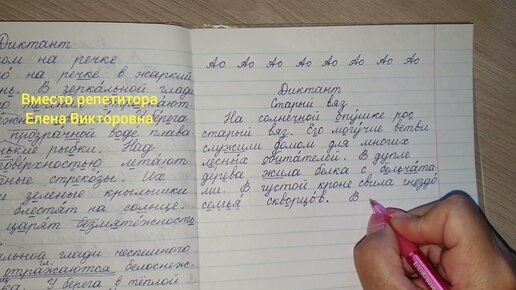 Диктант
ом на речке
на речке в жаркий
нь. В зеркальной глади
Вместо репетитора
Елена Викторовна
берега
прозрачной воде плава
лькие рыбки. Над
оверхностью летают
ные стрекозы. Их
и зеленые крылышки
блестят на солнце.
царят безмятежность
льной глади неспешного
отражаются белоснеж-
ка. У берега в тёплой
Ао Ао Ао Ао Ао Ао Ао Ао
Диктант
Старый вяз
На солнечной опушке рос
старый вяз. Его могучие ветви
служили домом для многих
лесных обитателей. В дупле
дерева жила белка с бельчата
ми. В густой кроне свила гнездо
семья скворцов. В